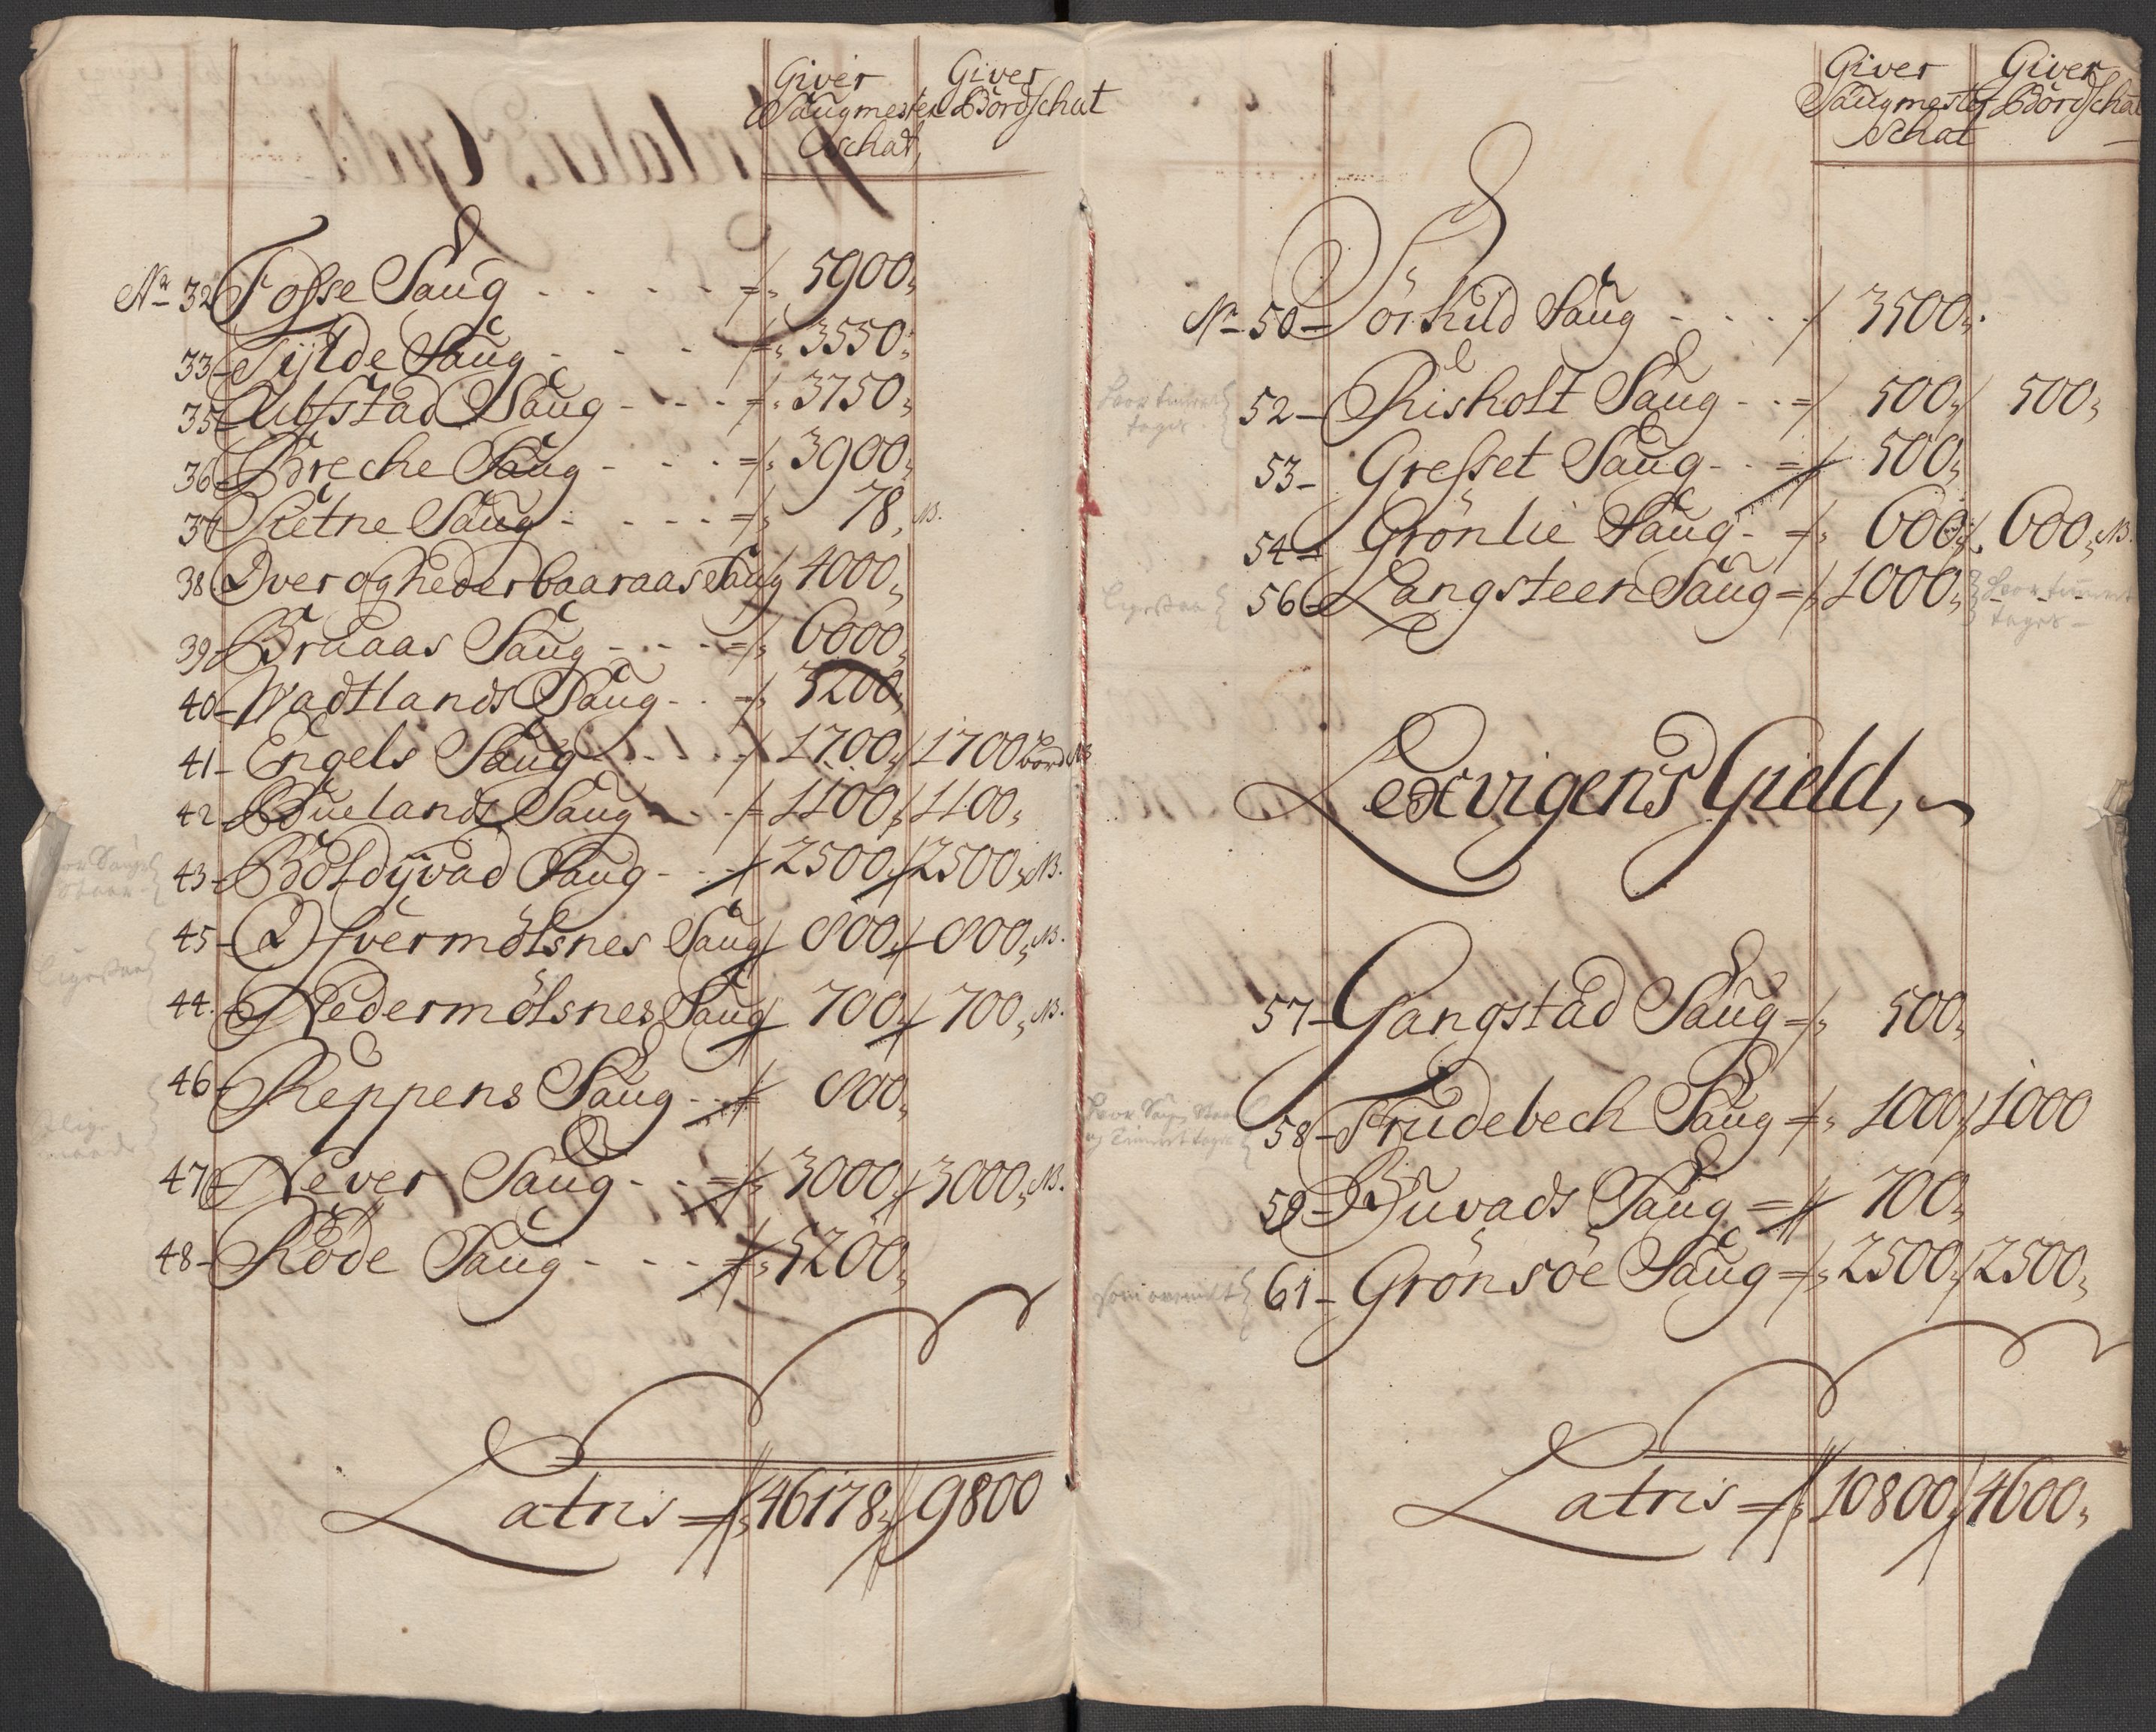 Giver Saugmester schat, Giver Bordschat
No 32 Fosse Saug - - - - 5900
33 - Tijlde Saug - - - 3550
35 Ulfstad Saug - - - 3750
36 Breche Saug - - - 3900
37 Sletne Saug - - - - 78, NB.
38 Over og Nederbaaraas Saug 4000
39 - Bruaas Saug - - - 6000
40 - Wadtlands Saug - - 3200
41 - Engels Saug - - - 1700 1700 bord NB
42 - Buelands Saug - - 1100 1100
43 - Boldijvad Saug - - 2500 2500 NB.
45 - Ofvermölsnes Saug 800 800 NB.
44. - Nedermölsnes Saug 700 700 NB.
46 - Reppens Saug - - 800
47 - Never Saug - - 3000 3000 NB.
48 - Röde Saug - - - 5200
Latris 46178 9800
Giver Saugmester Schat Giver Bordschat
No 50 - Törkild Saug - - - 3500
52 - Risholt Saug - - 500 500
53 - Gresset Saug - - 500
54 - Grönlie Saug - 600 600 NB.
56 Langsteen Saug 1000 - - -
Lexvigens Gield,
57 - Gangstad Saug 500
58 - Trudebech Saug 1000 1000
59 - Buvads Saug 700
61 - Grönsöe Saug 2500 2500
Latris 10800 4600